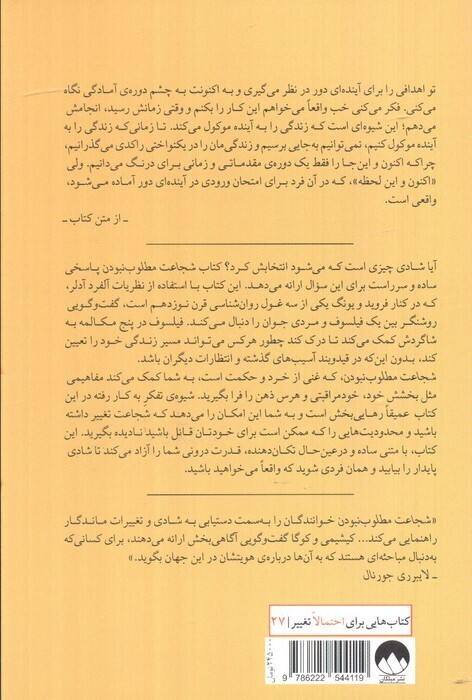 تو اهدافی را برای آینده‌ای دور در نظر می‌گیری و به اکنونت به چشم دوره‌ی آمادگی نگاه
می‌کنی. فکر می‌کنی خب واقعاً می‌خواهم این کار را بکنم و وقتی زمانش رسید، انجامش
می‌دهم؛ این شیوه‌ای است که زندگی را به آینده موکول می‌کند. تا زمانی‌که زندگی را به
آینده موکول کنیم، نمی‌توانیم به‌جایی برسیم و زندگی‌مان را در یکنواختی راکدی می‌گذرانیم،
چراکه اکنون و این‌جا را فقط یک دوره‌ی مقدماتی و زمانی برای درنگ می‌دانیم. ولی
«اکنون و این لحظه»، که در آن فرد برای امتحان ورودی در آینده‌ای دور آماده می‌شود،
واقعی است.
ـ از متن کتاب ـ
آیا شادی چیزی است که می‌شود انتخابش کرد؟ کتاب شجاعت مطلوب‌نبودن پاسخی
ساده و سرراست برای این سؤال ارائه می‌دهد. این کتاب با استفاده از نظریات آلفرد آدلر،
که در کنار فروید و یونگ یکی از سه غول روان‌شناسی قرن نوزدهم است، گفت‌وگویی
روشنگر بین یک فیلسوف و مردی جوان را دنبال می‌کند. فیلسوف در پنج مکالمه به
شاگردش کمک می‌کند تا درک کند چطور هرکس می‌تواند مسیر زندگی خود را تعیین
کند، بدون این‌که در قیدوبند آسیب‌های گذشته و انتظارات دیگران باشد.
شجاعت مطلوب‌نبودن، که غنی از خرد و حکمت است، به شما کمک می‌کند مفاهیمی
مثل بخشش خود، خودمراقبتی و هرس ذهن را فرا بگیرید. شیوه‌ی تفکرِ به کار رفته در این
کتاب عمیقاً رهایی‌بخش است و به شما این امکان را می‌دهد که شجاعت تغییر داشته
باشید و محدودیت‌هایی را که ممکن است برای خودتان قائل باشید نادیده بگیرید. این
کتاب، با متنی ساده و درعین‌حال تکان‌دهنده، قدرت درونی شما را آزاد می‌کند تا شادی
پایدار را بیابید و همان فردی شوید که واقعاً می‌خواهید باشید.
«شجاعت مطلوب‌نبودن خوانندگان را به‌سمت دستیابی به شادی و تغییرات ماندگار
راهنمایی می‌کند... کیشیمی و کوگا گفت‌وگویی آگاهی‌بخش ارائه می‌دهند، برای کسانی‌که
به‌دنبال مباحثه‌ای هستند که به آن‌ها درباره‌ی هویتشان در این جهان بگوید.»
ـ لایبرری جورنال
کتاب‌هایی برای احتمالاً تغییر | ۲۷
۲۴۵۰۰۰ تومان
9 786222 544119
نشر میلکان